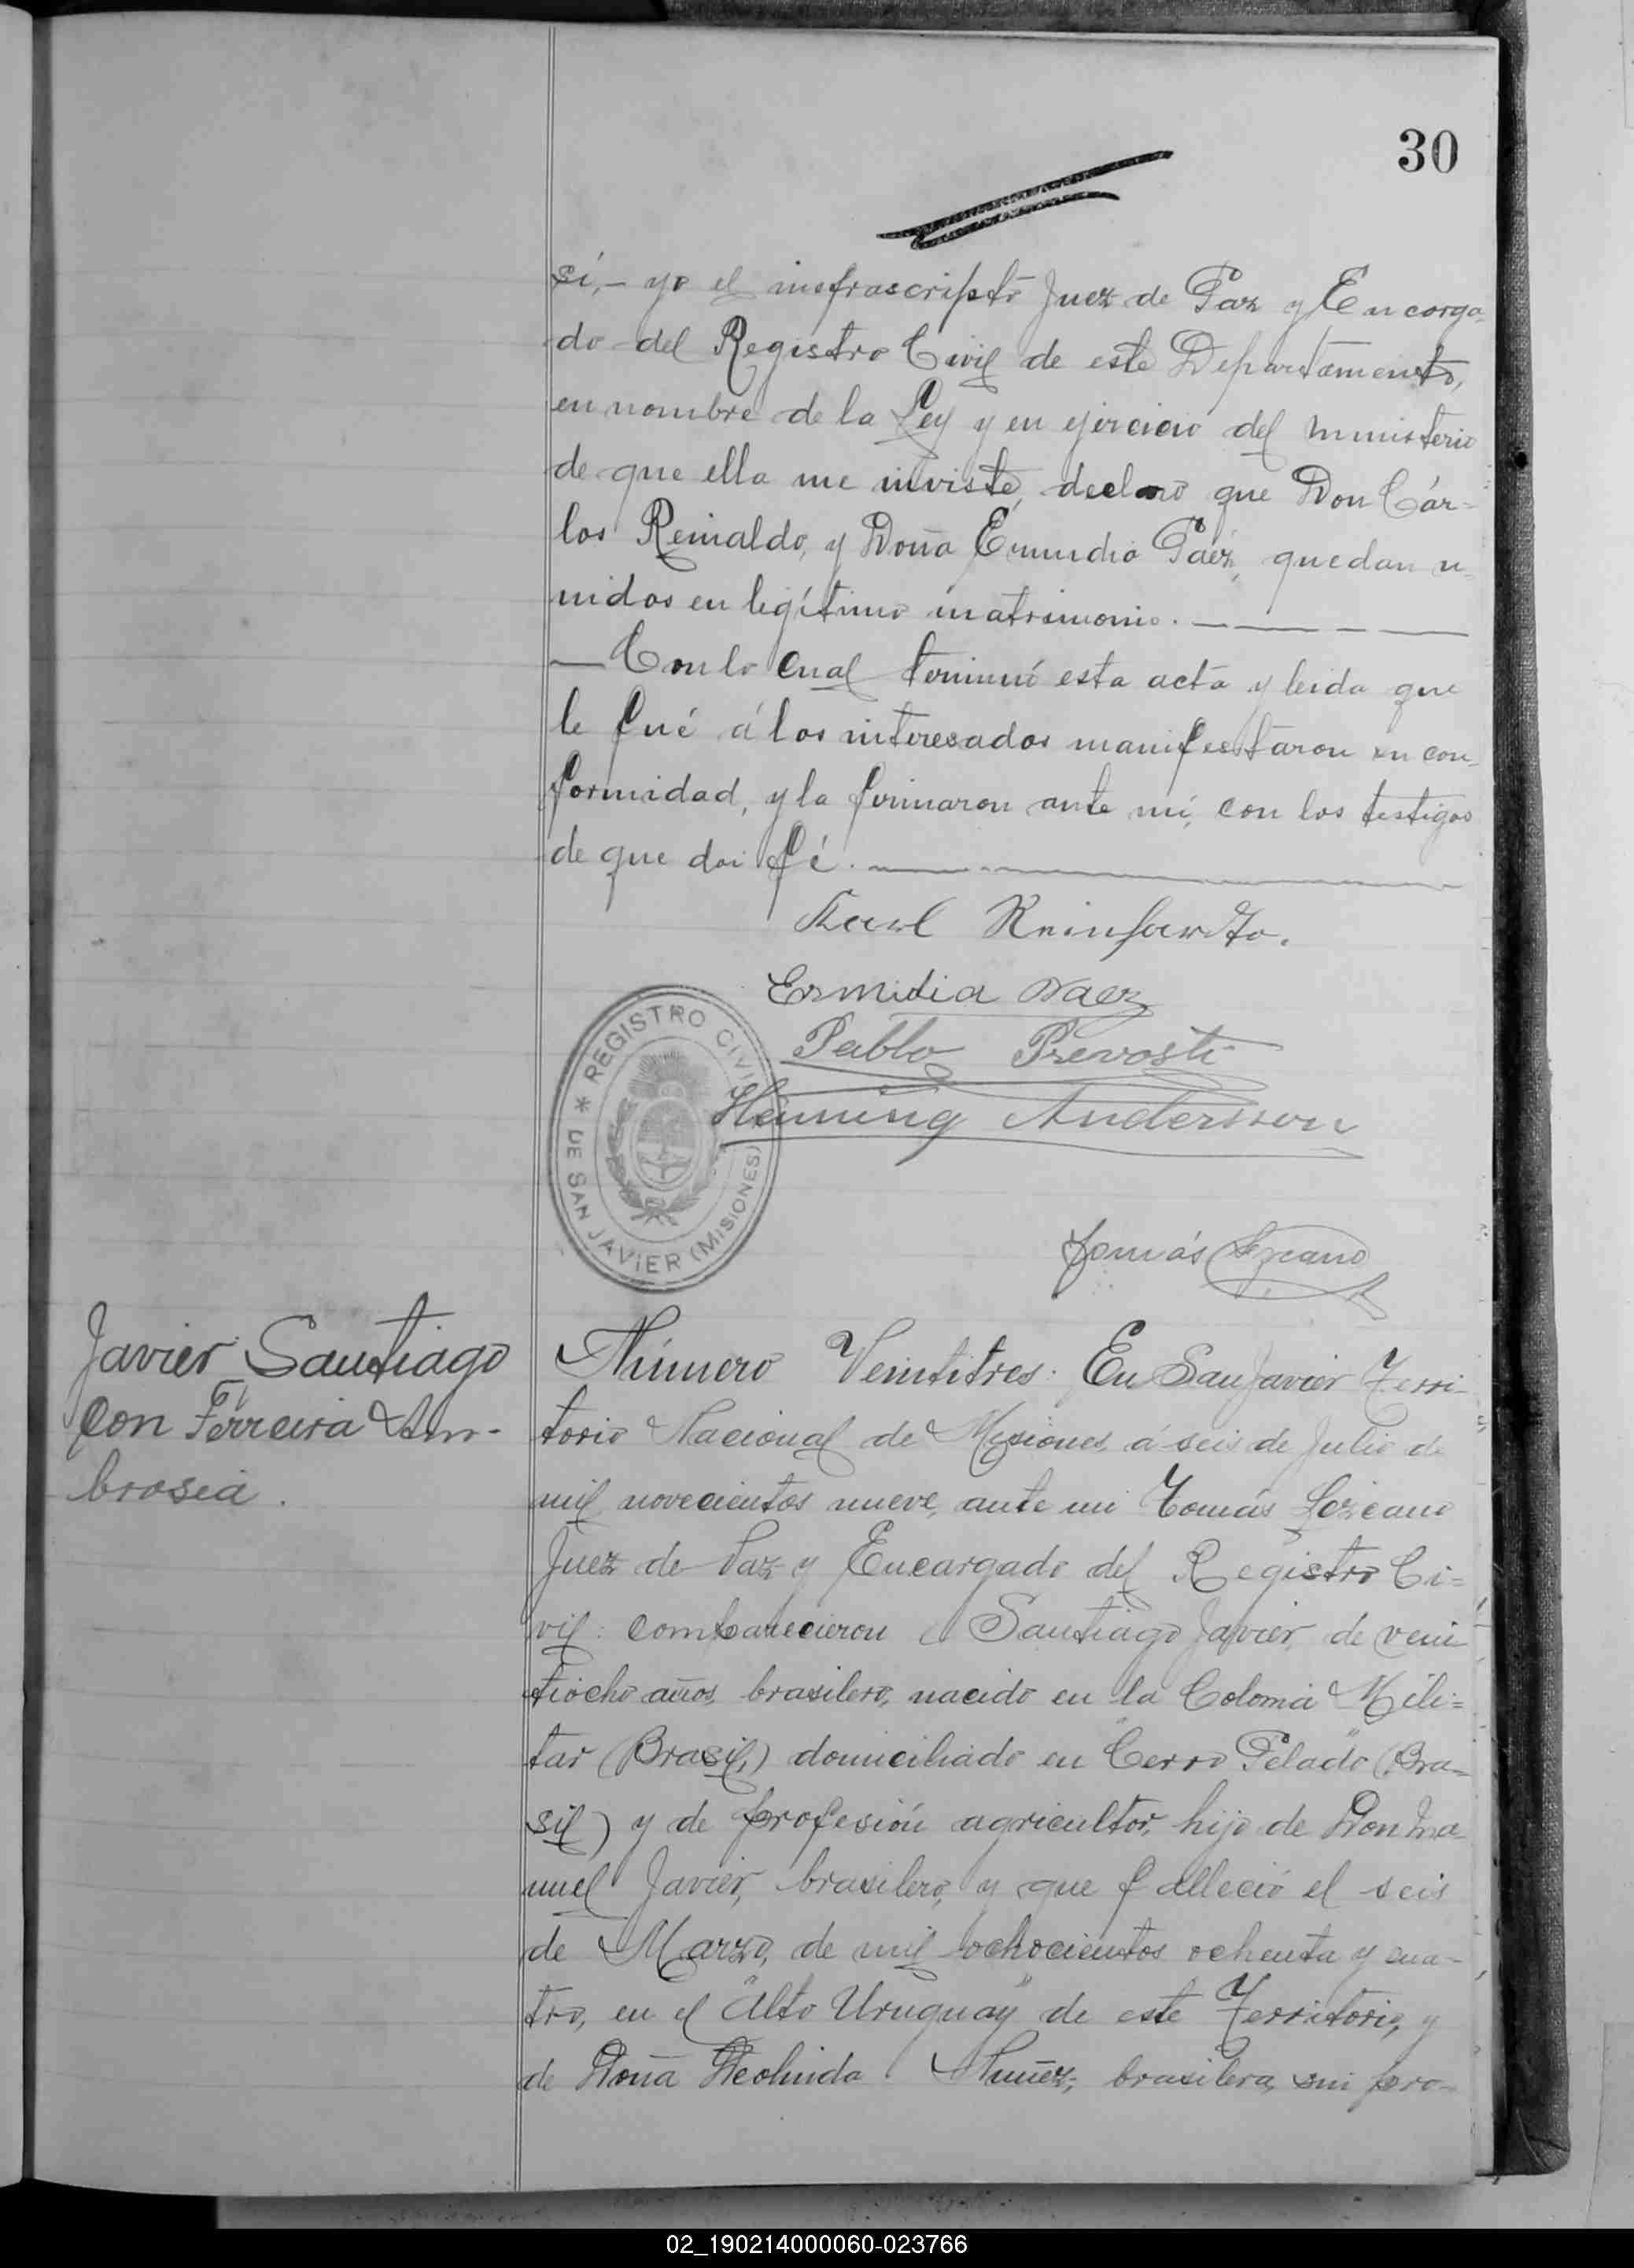 30
sí,- yo el infrascripto Juez de Paz y Encarga-
do del Registro Civil de este Departamento,
en nombre de la Ley y en ejercicio del ministerio
de que ella me inviste, declaro que Don Cár-
los Reinaldo, y Doña Emudia Paéz, quedan u-
nidos en legítimo matrimonio. — — — —
— Con lo Cual terminó esta acta y leida que
le fué á los interesados manifestaron su con-
formidad, y la firmaron ante mí, con los testigos
de que doi fé. —
Karl Reinhardto.
Ermidia Paez
Pablo Prevosti
Henning Andersson
* REGISTRO CIVIL * DE SAN JAVIER (MISIONES)
Tomás Lezcano
Javier Santiago
con Ferreira Am-
brosia.
Número Veintitres: En San Javier Terri-
torio Nacional de Misiones, á seis de Julio de
mil novecientos nueve, ante mi Tomás Lezcano
Juez de Paz y Encargado del Registro Ci=
vil: comparecieron Santiago Javier, de vein
tiocho años, brasilero, nacido en la Colonia Mili=
tar (Brasil,) domiciliado en "Cerro Pelado" (Bra-
sil) y de profesión agricultor, hijo de Don Ma-
nuel Javier, brasilero, y que falleció el seis
de Marzo, de mil ochocientos ochenta y cua-
tro, en el "Alto Uruguay" de este Territorio, y
de Doña Deolinda Nuñez, brasilera, sin pro-
02_190214000060-023766